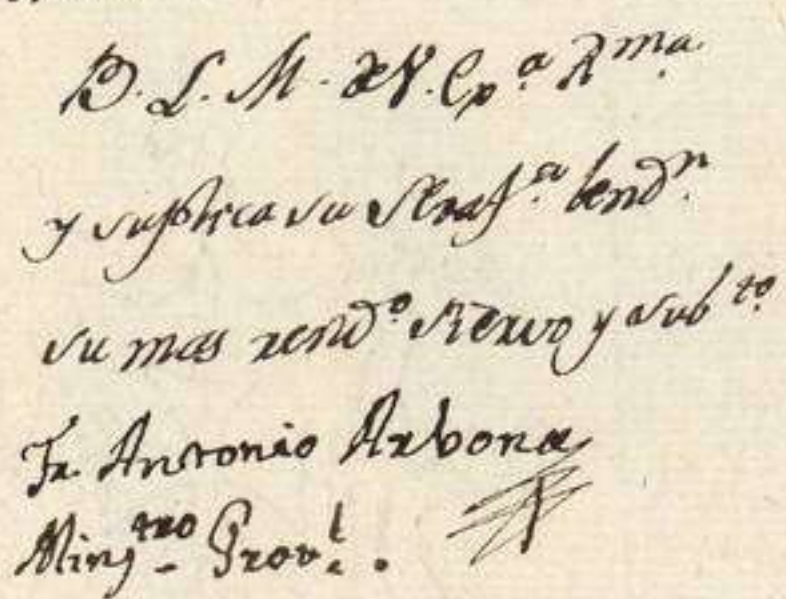 B. L. M. de V. Exª Rmª
y suplica su Serafªª bendⁿ
su mas rendº siervo y subᵗº
Fr. Antonio Arbona
Minᵗʳº Provˡ.